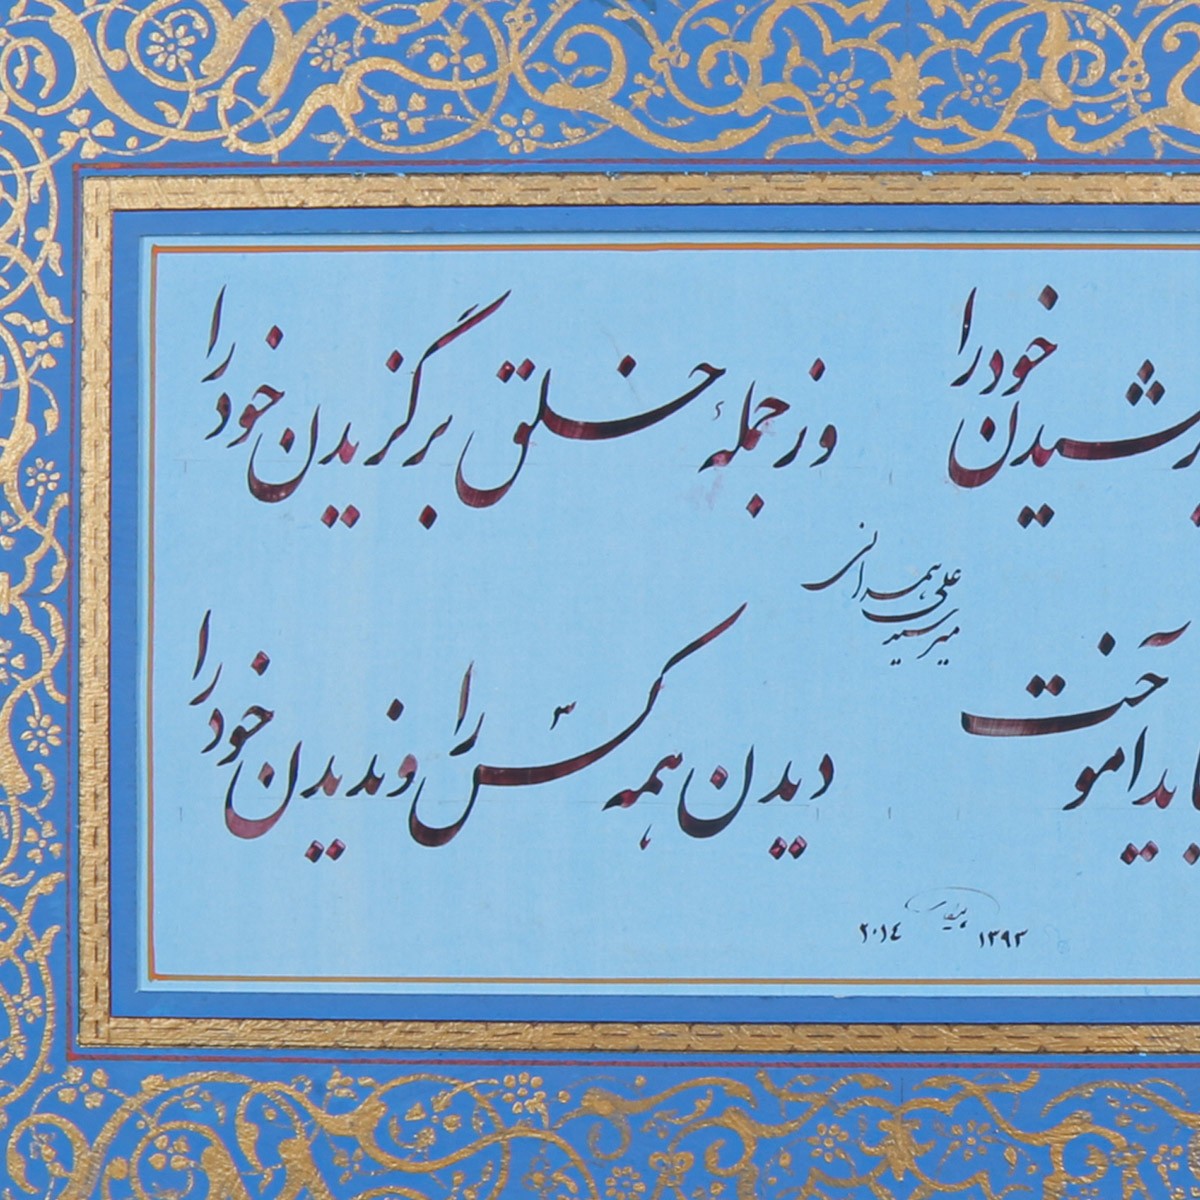 شیدن خود را وز جملهٔ خلق برگزیدن خود را
میر سید علی همدانی
ید آموخت دیدن همه کس را و ندیدن خود را
۱۳۹۳ ٢٠١٤